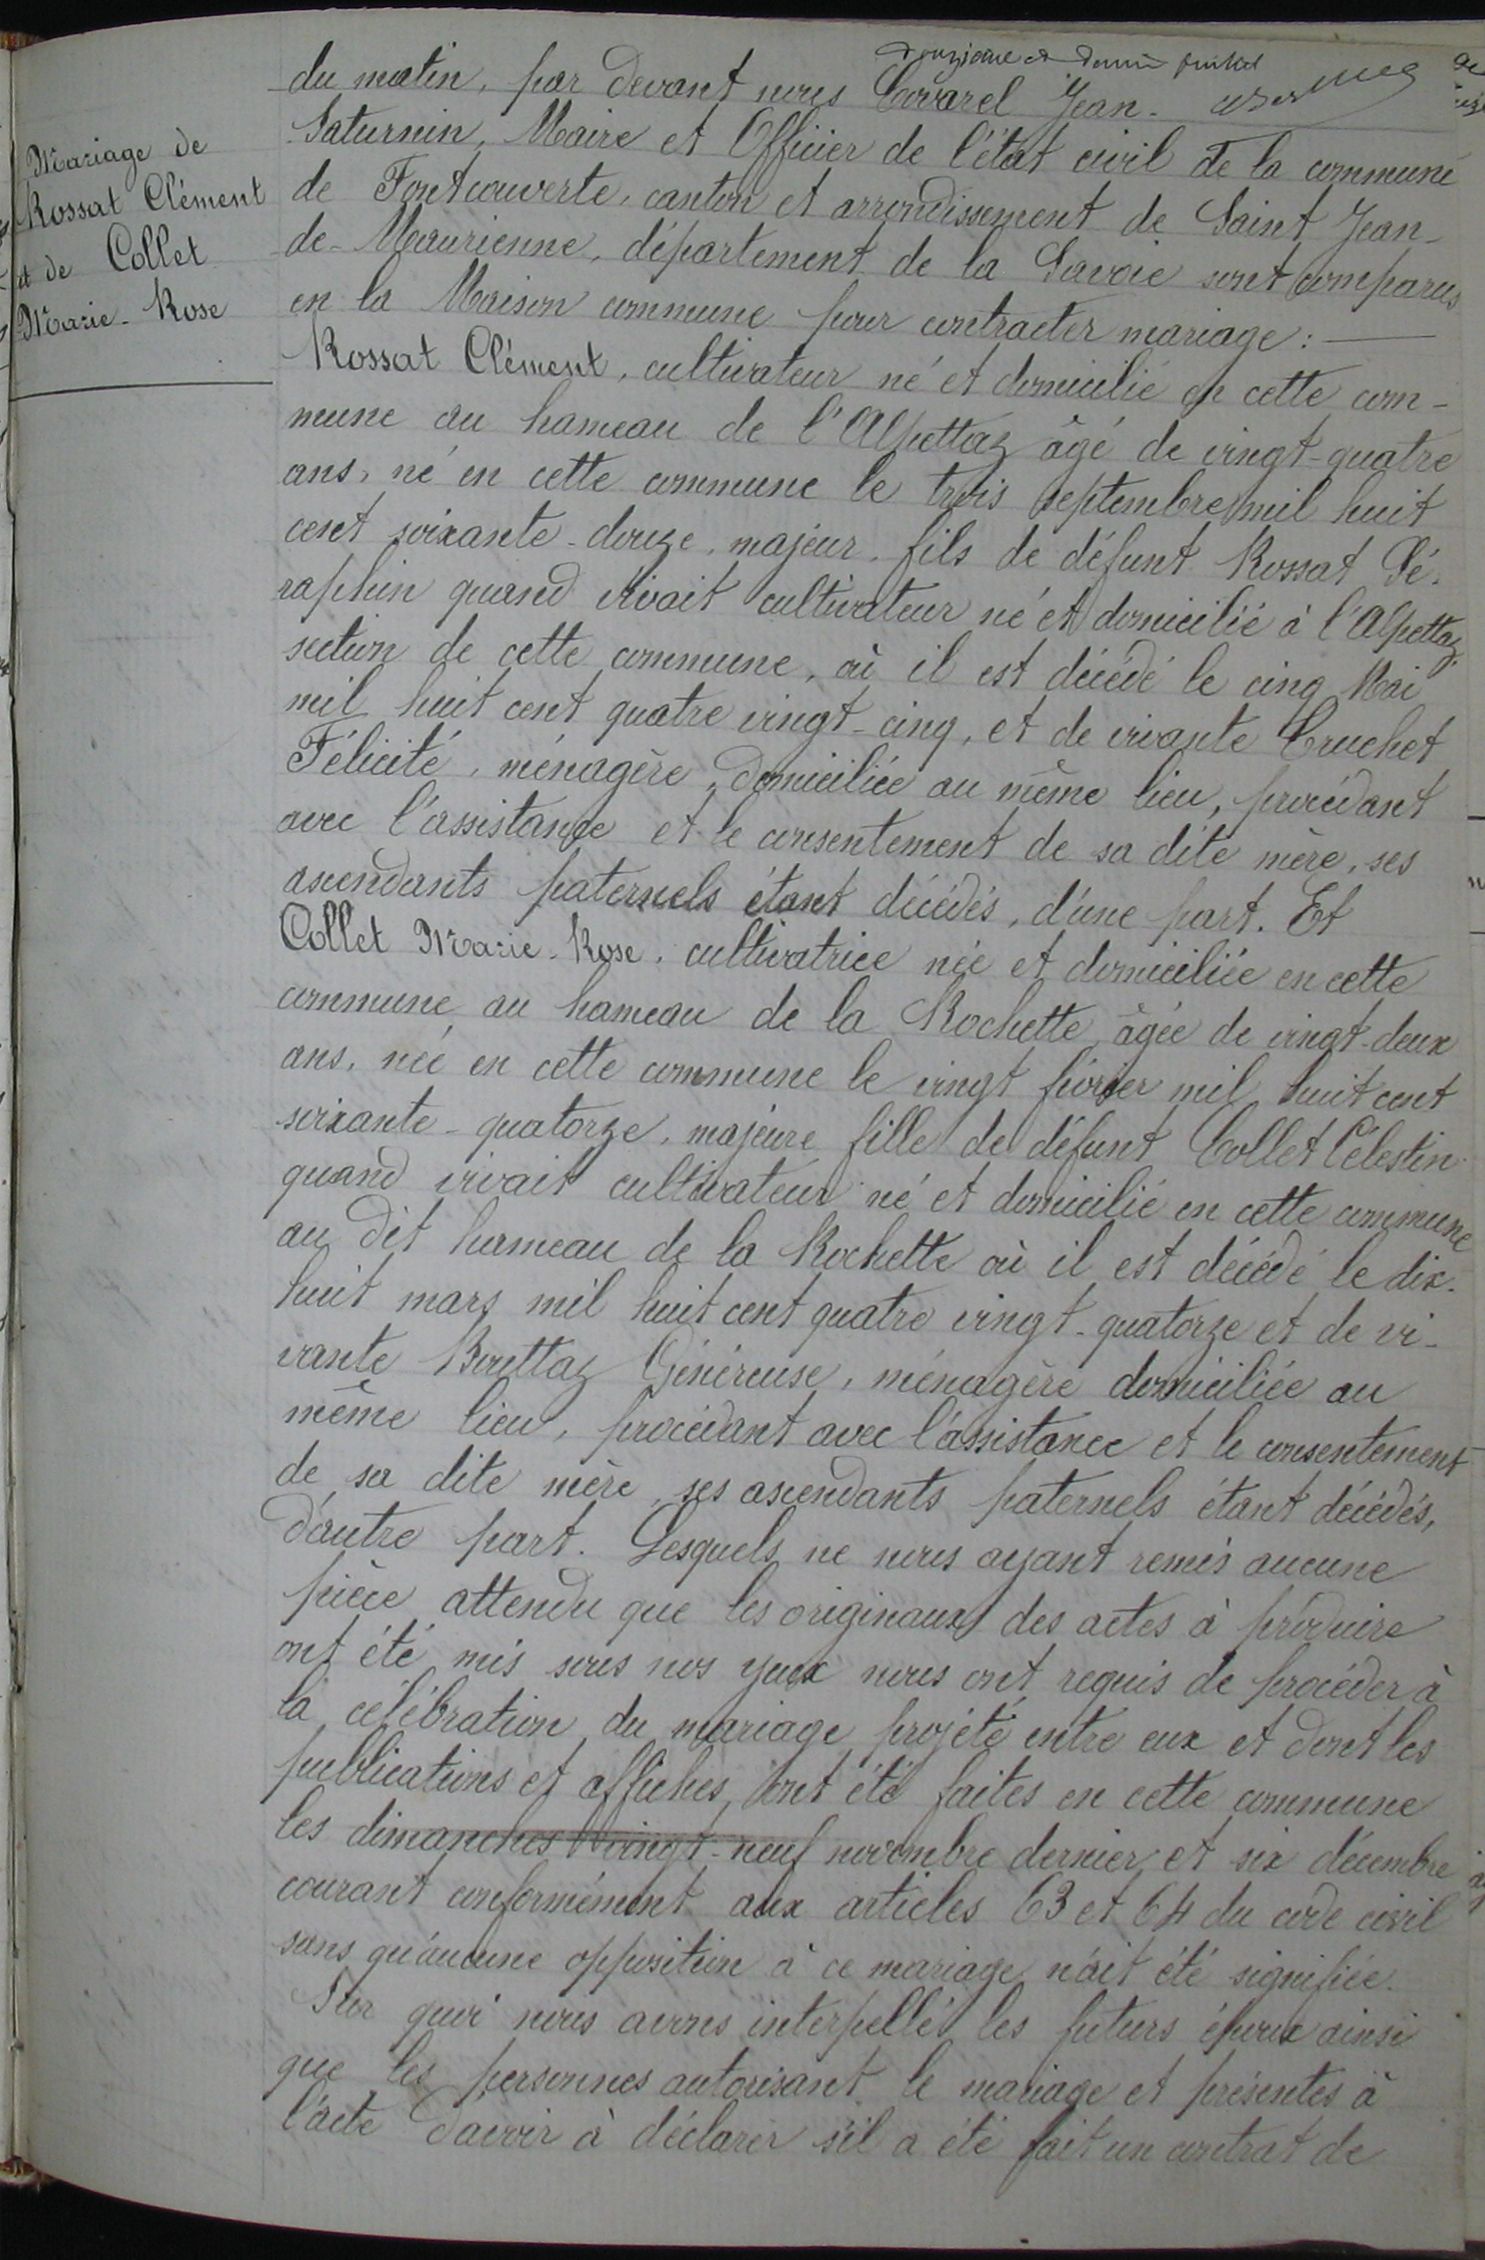 Mariage de
Rossat Clément
et de Collet
Marie-Rose
douzième et dernier feuillet
du matin, par devant nous Covarel Jean-
Saturnin, Maire et Officier de l'état civil de la commune
de Fontcouverte, canton et arrondissement de Saint Jean-
de-Maurienne, département de la Savoie sont comparus
en la Maison commune pour contracter mariage :
Rossat Clément, cultivateur né et domicilié en cette com-
mune au hameau de l'Alpettaz âgé de vingt-quatre
ans, né en cette commune le trois septembre mil huit
cent soixante-douze, majeur, fils de défunt Rossat Sé-
raphin quand vivait cultivateur né et domicilié à l'Alpettaz
section de cette commune, où il est décédé le cinq Mai
mil huit cent quatre vingt-cinq, et de vivante Cruchet
Félicité, ménagère, domiciliée au même lieu, procédant
avec l'assistance et le consentement de sa dite mère, ses
ascendants paternels étant décédés, d'une part. Et
Collet Marie-Rose, cultivatrice née et domiciliée en cette
commune au hameau de la Rochette, âgée de vingt-deux
ans, née en cette commune le vingt février mil huit cent
soixante-quatorze, majeure fille de défunt Collet Célestin
quand vivait cultivateur né et domicilié en cette commune
au dit hameau de la Rochette où il est décédé le dix-
huit mars mil huit cent quatre vingt-quatorze et de vi-
vante Bouttaz Généreuse, ménagère domiciliée au
même lieu, procédant avec l'assistance et le consentement
de sa dite mère, ses ascendants paternels étant décédés,
d'autre part. Lesquels ne nous ayant remis aucune
pièce attendu que les originaux des actes à produire
ont été mis sous nos yeux nous ont requis de procéder à
la célébration du mariage projeté entre eux et dont les
publications et affiches ont été faites en cette commune
les dimanches vingt-neuf novembre dernier et six décembre
courant conformément aux articles 63 et 64 du code civil
sans qu'aucune opposition à ce mariage n'ait été signifiée.
Sur quoi nous avons interpellé les futurs époux ainsi
que les personnes autorisant le mariage et présentes à
l'acte d'avoir à déclarer s'il a été fait un contrat de